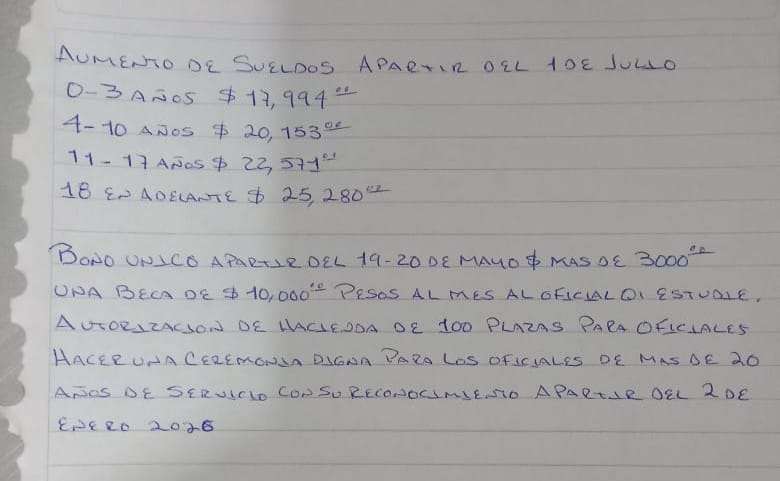 AUMENTO DE SUELDOS APARTIR DEL 1 DE JULIO
0-3 AÑOS $ 17,994 00
4-10 AÑOS $ 20,153 00
11-17 AÑOS $ 22,571 01
18 EN ADELANTE $ 25,280
BONO UNICO APARTIR DEL 19-20 DE MAYO $ MAS DE 3000 00
UNA BECA DE $ 10,000 00 PESOS AL MES AL OFICIAL QI ESTUDIE.
AUTORIZACION DE HACIENDA DE 100 PLAZAS PARA OFICIALES
HACER UNA CEREMONIA DIGNA PARA LOS OFICIALES DE MAS DE 20
AÑOS DE SERVICIO CON SU RECONOCIMIENTO APARTIR DEL 2 DE
ENERO 2026